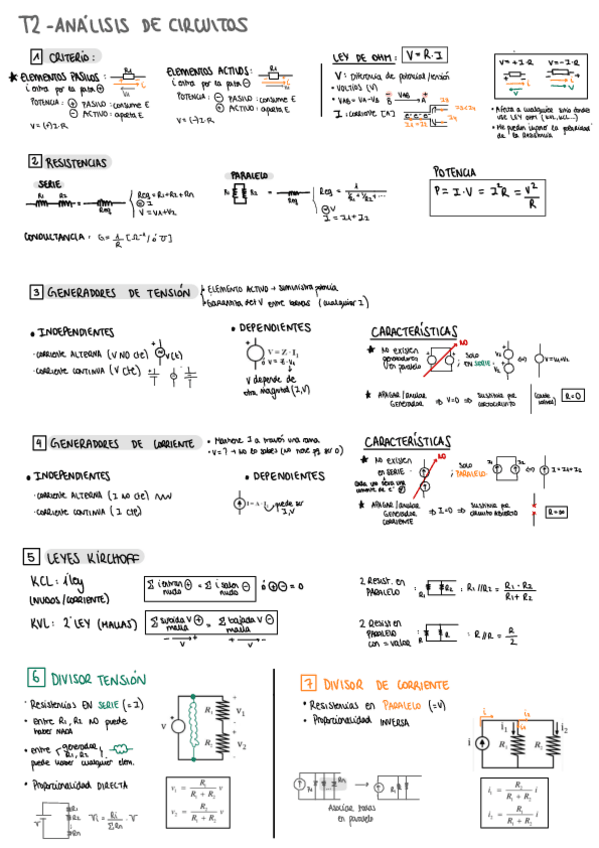 T2 - ANÁLISIS DE CIRCUITOS
1 CRITERIO:
★ ELEMENTOS PASIVOS:
i entra por la pata ⊕
POTENCIA: ⊕ PASIVO: consume E
⊖ ACTIVO: aporta E
V = (+)I·R
ELEMENTOS ACTIVOS:
i entra por la pata ⊖
POTENCIA: ⊖ PASIVO: consume E
⊕ ACTIVO: aporta E
V = (-)I·R
LEY DE OHM: V = R·I
V: Diferencia de potencial/tensión
• VOLTIOS (V)
• VAB = VA - VB
I: corriente [A]
V = +I·R V = -I·R
• Afecta a cualquier sitio donde
use LEY OHM (KVL, KCL...)
de la Resistencia
2 RESISTENCIAS
SERIE
R1 R2
Req
Req = R1 + R2 + Rn
⊜ I
V = V1 + V2
PARALELO
R1 R2
Req
Req = 1 / (1/R1 + 1/R2 + ...)
⊜ V
I = I1 + I2
POTENCIA
P = I·V = I²R = V²/R
CONDUCTANCIA: G = 1/R [Ω⁻¹/ó ℧]
3 GENERADORES DE TENSIÓN
ELEMENTO ACTIVO → suministra potencia
Garantiza del V entre bornas (cualquier I)
• INDEPENDIENTES
· CORRIENTE ALTERNA (V NO cte) V(t)
· CORRIENTE CONTINUA (V cte)
• DEPENDIENTES
V = Z·I1
V depende de
otra magnitud (I,V)
CARACTERÍSTICAS
★ No existen
generadores
V en paralelo
NO
Solo
en SERIE
V1
V2
V = V1 + V2
★ APAGAR/anular
Generador ⇒ V=0 ⇒ Sustituir por
cortocircuito
R=0
4 GENERADORES DE CORRIENTE
• Mantiene I a través una rama
• V=? → no lo sabes (no tiene pq ser 0)
• INDEPENDIENTES
· CORRIENTE ALTERNA (I NO cte)
· CORRIENTE CONTINUA (I cte)
• DEPENDIENTES
puede ser
I,V
CARACTERÍSTICAS
★ No existen
en SERIE
NO
Solo
PARALELO
I = I1 + I2
★ APAGAR/anular
Generador
CORRIENTE
⇒ I=0 ⇒ Sustituir por
circuito abierto
R=∞
5 LEYES KIRCHOFF
KCL: 1ª ley
(NUDOS/CORRIENTE)
Σ i entran ⊕ = Σ i salen ⊖
nudo nudo
ó ⊕ ⊖ = 0
KVL: 2ª LEY (MALLAS)
Σ subida V ⊕ = Σ bajada V ⊖
malla malla
2 Resist. en
PARALELO : R1 R2 : R1 // R2 = R1 · R2 / R1 + R2
2 Resist en
PARALELO
con = valor : R R : R // R = R / 2
6 DIVISOR TENSIÓN
• Resistencias EN SERIE (= I)
• entre R1, R2 NO puede
haber NADA
• entre generador,
R1, R2,
puede haber cualquier elem.
• Proporcionalidad DIRECTA
V
R1
R2
V1
V2
Vi = Ri / ΣRn · V
v1 = R1 / R1 + R2 v
v2 = R2 / R1 + R2 v
7 DIVISOR DE CORRIENTE
• Resistencias en PARALELO (=V)
• Proporcionalidad INVERSA
Asociar todas
en paralelo
i
i1
i2
R1
R2
i1 = R2 / R1 + R2 i
i2 = R1 / R1 + R2 i